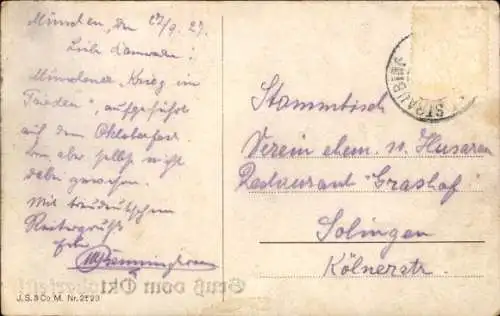 München, den 27/9. 27.
Liebe Kameraden!
Münchener "Krieg im
Frieden", aufgeführt
auf dem Oktoberfest
bin aber selbst nicht
dabei gewesen.
Mit treudeutschem
Reitergruß
Stammtisch
Verein ehem. Husaren
Restaurant "Grashof"
Solingen
Kölnerstr.
STRAUBING
Gruß vom Oktoberfest
J.S.&Co M. Nr. 2523